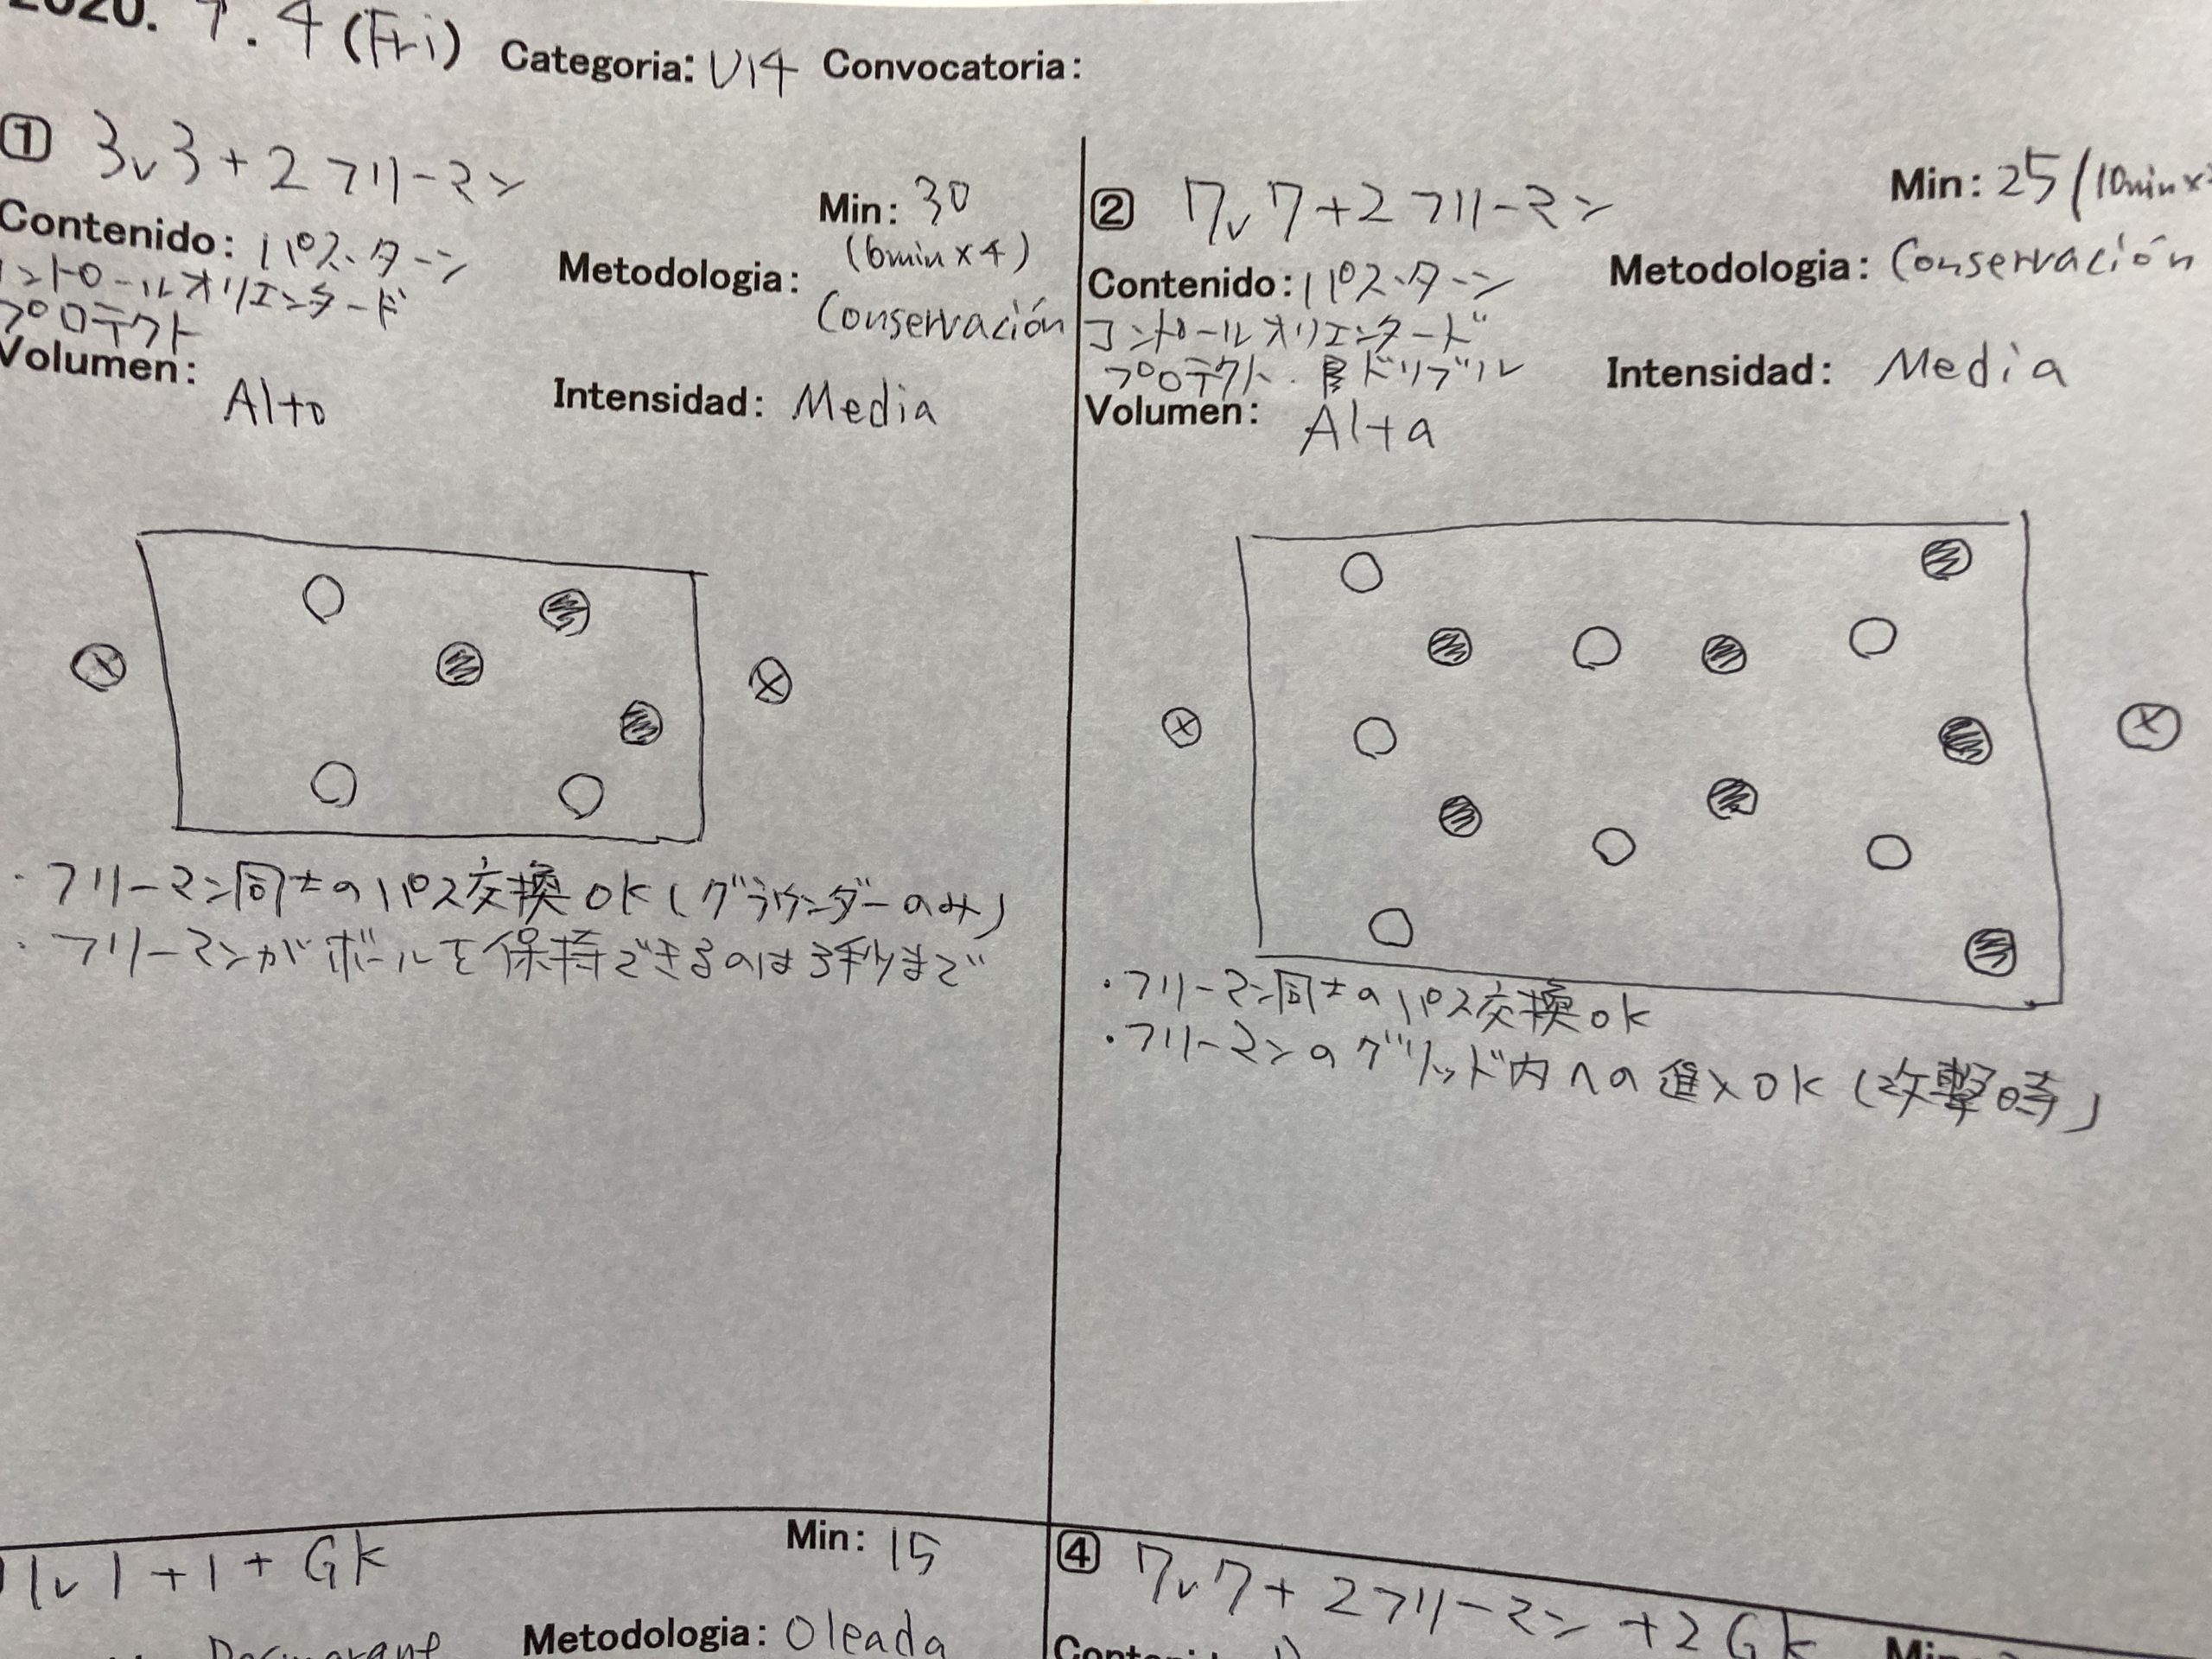 2020. 9. 4 (Fri) Categoria: U14 Convocatoria:
1 3v3+2フリーマン
Min: 30
(6min×4)
Contenido: パス、ターン
コントロールオリエンタード
プロテクト
Metodologia: Conservación
Volumen: Alto
Intensidad: Media
・フリーマン同士のパス交換OK(グラウンダーのみ)
・フリーマンがボールを保持できるのは3秒まで
2 7v7+2フリーマン
Min: 25 (10min×
Contenido: パス、ターン
コントロールオリエンタード
プロテクト、ドリブル
Metodologia: Conservación
Volumen: Alta
Intensidad: Media
・フリーマン同士のパス交換OK
・フリーマンのグリッド内への進入OK(攻撃時)
1v1+1+GK
Min: 15
Metodologia: Oleada
4 7v7+2フリーマン+2GK